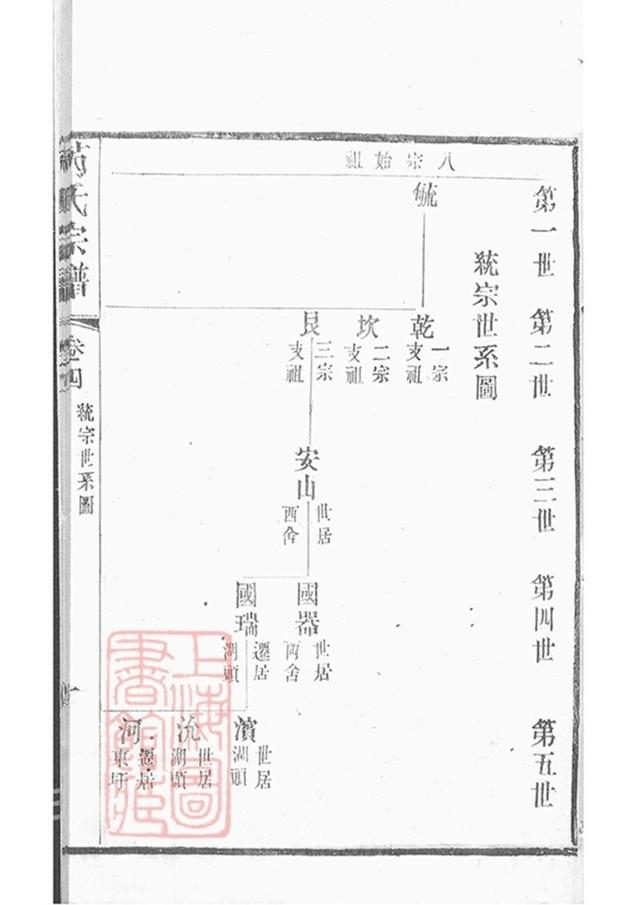 八宗始祖
第一世
第二世
第三世
第四世
第五世
統宗世系圖
毓
乾
一宗
支祖
坎
二宗
支祖
艮
三宗
支祖
安山
世居
西舍
國器
世居
西舍
國瑞
遷居
湖頭
濱
世居
湖頭
沇
世居
湖頭
河
遷居
東圩
氏宗譜
卷四
統宗世系圖
上海圖書館藏